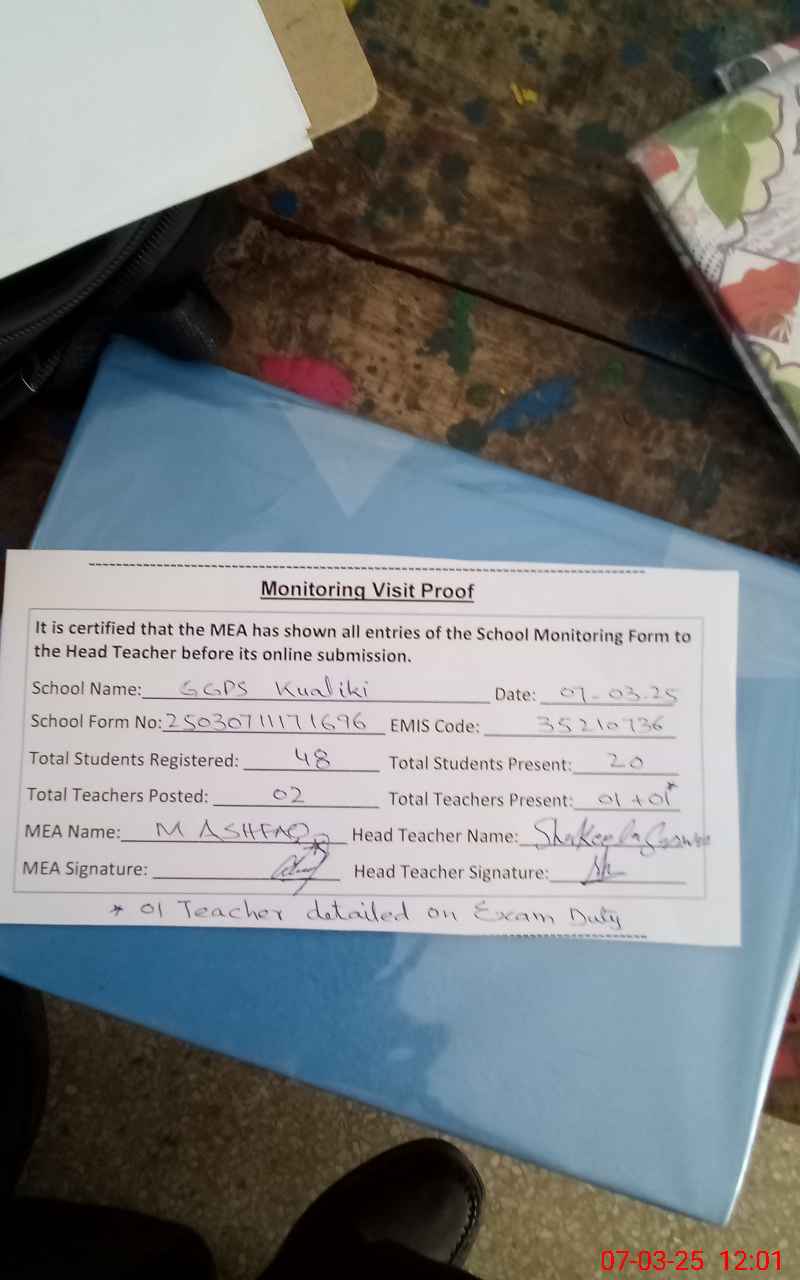 Monitoring Visit Proof
It is certified that the MEA has shown all entries of the School Monitoring Form to
the Head Teacher before its online submission.
School Name: GGPS Kualiki Date: 07-03-25
School Form No: 25030711171696 EMIS Code: 35210736
Total Students Registered: 48 Total Students Present: 20
Total Teachers Posted: 02 Total Teachers Present: 01 + 01*
MEA Name: M ASHFAQ Head Teacher Name: Shakeela
MEA Signature: Head Teacher Signature:
* 01 Teacher detailed on Exam Duty
07-03-25 12:01